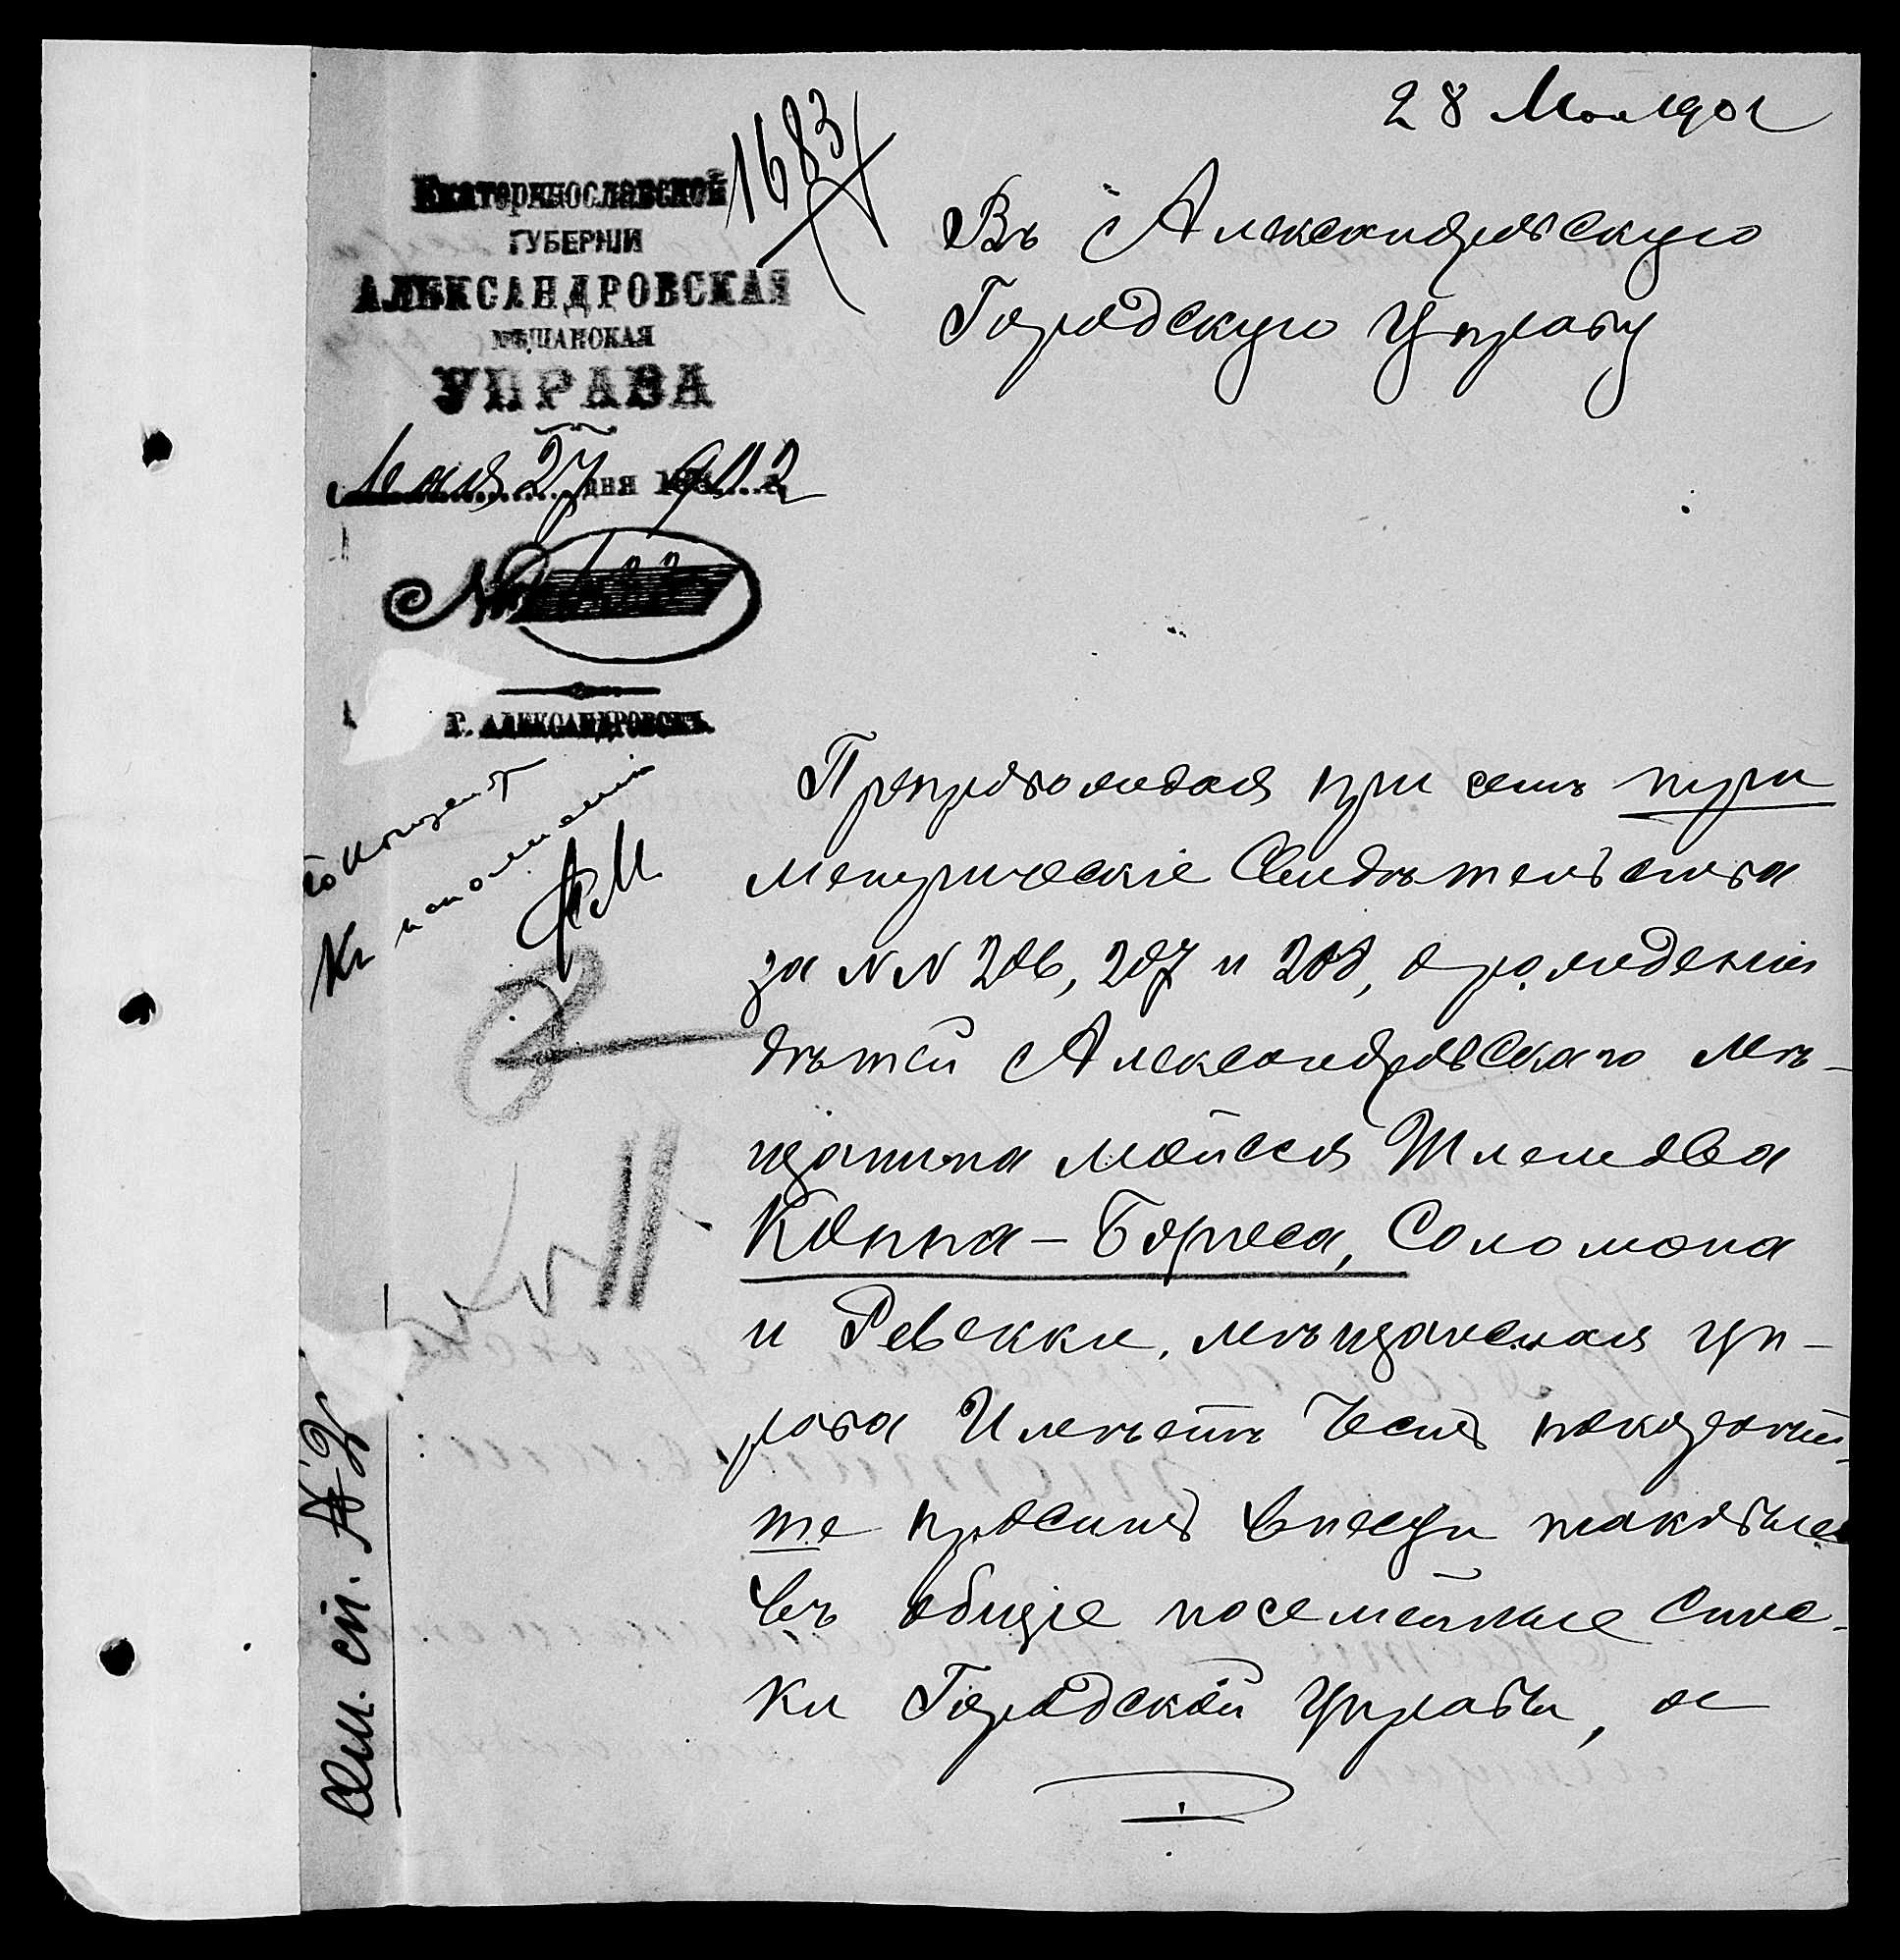 28 Мая 1902
1683
Екатеринославской
ГУБЕРНІИ
АЛЕКСАНДРОВСКАЯ
МѢЩАНСКАЯ
УПРАВА
Мая 27 дня 1902
№
Г. АЛЕКСАНДРОВСКЪ.
Въ Александровскую
Городскую Управу
Къ исполненію
Препровождая при семъ три
метрическіе Свидѣтельства
за № № 206, 207 и 208, о рожденіи
дѣтей Александровскаго мѣ-
щанина Мойсея Шлемова
Коппа - Бориса, Соломона
и Ревекки, мѣщанская Уп-
рава Имѣетъ Честь покорнѣй-
ше просить внести таковыхъ
въ общіе посемейные Спис-
ки Городской Управы, о